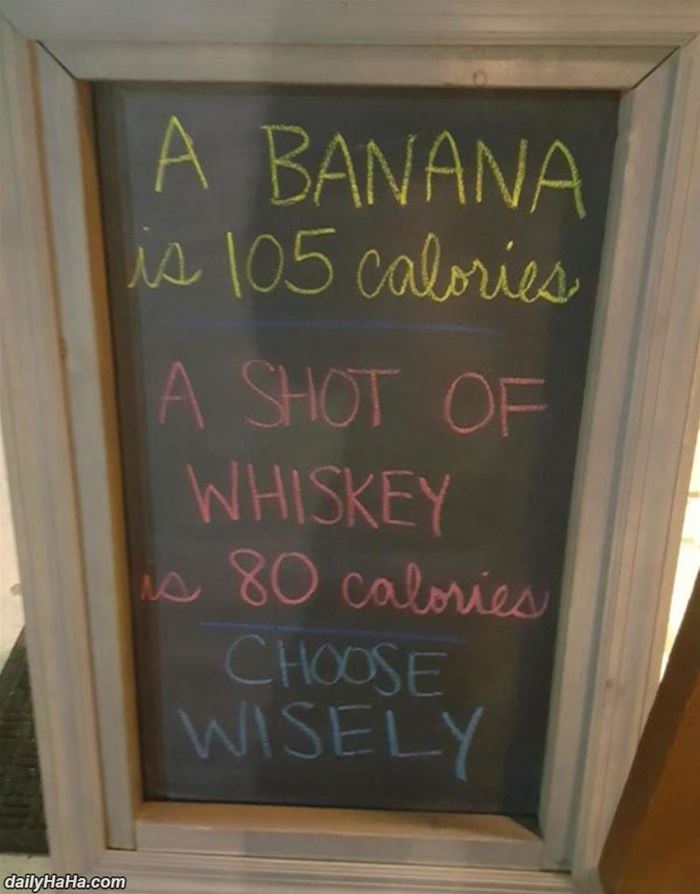 A BANANA
is 105 calories
A SHOT OF
WHISKEY
is 80 calories
CHOOSE
WISELY
dailyHaHa.com